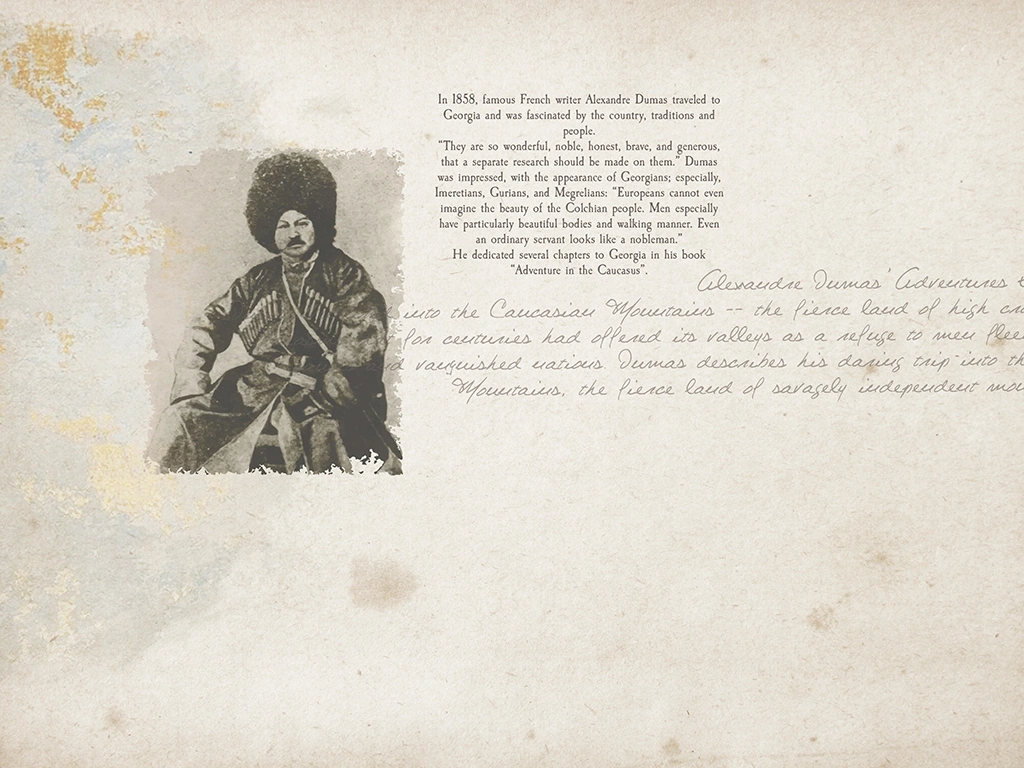 In 1858, famous French writer Alexandre Dumas traveled to
Georgia and was fascinated by the country, traditions and
people.
"They are so wonderful, noble, honest, brave, and generous,
that a separate research should be made on them." Dumas
was impressed, with the appearance of Georgians; especially,
Imeretians, Gurians, and Megrelians: "Europeans cannot even
imagine the beauty of the Colchian people. Men especially
have particularly beautiful bodies and walking manner. Even
an ordinary servant looks like a nobleman."
He dedicated several chapters to Georgia in his book
"Adventure in the Caucasus".
Alexandre Dumas' Adventures
into the Caucasian Mountains -- the fierce land of high
for centuries had offered its valleys as a refuge to men
vanquished nations. Dumas describes his daring trip into
Mountains, the fierce land of savagely independent